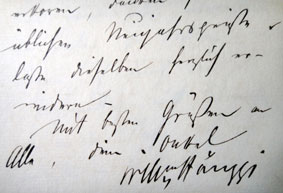 erkoren, danken
üblichen Neujahrsgrüsse &
lasse dieselben herzlich er-
widern.
Mit besten Grüßen an
Alle, dein Onkel
Willy Hänggi